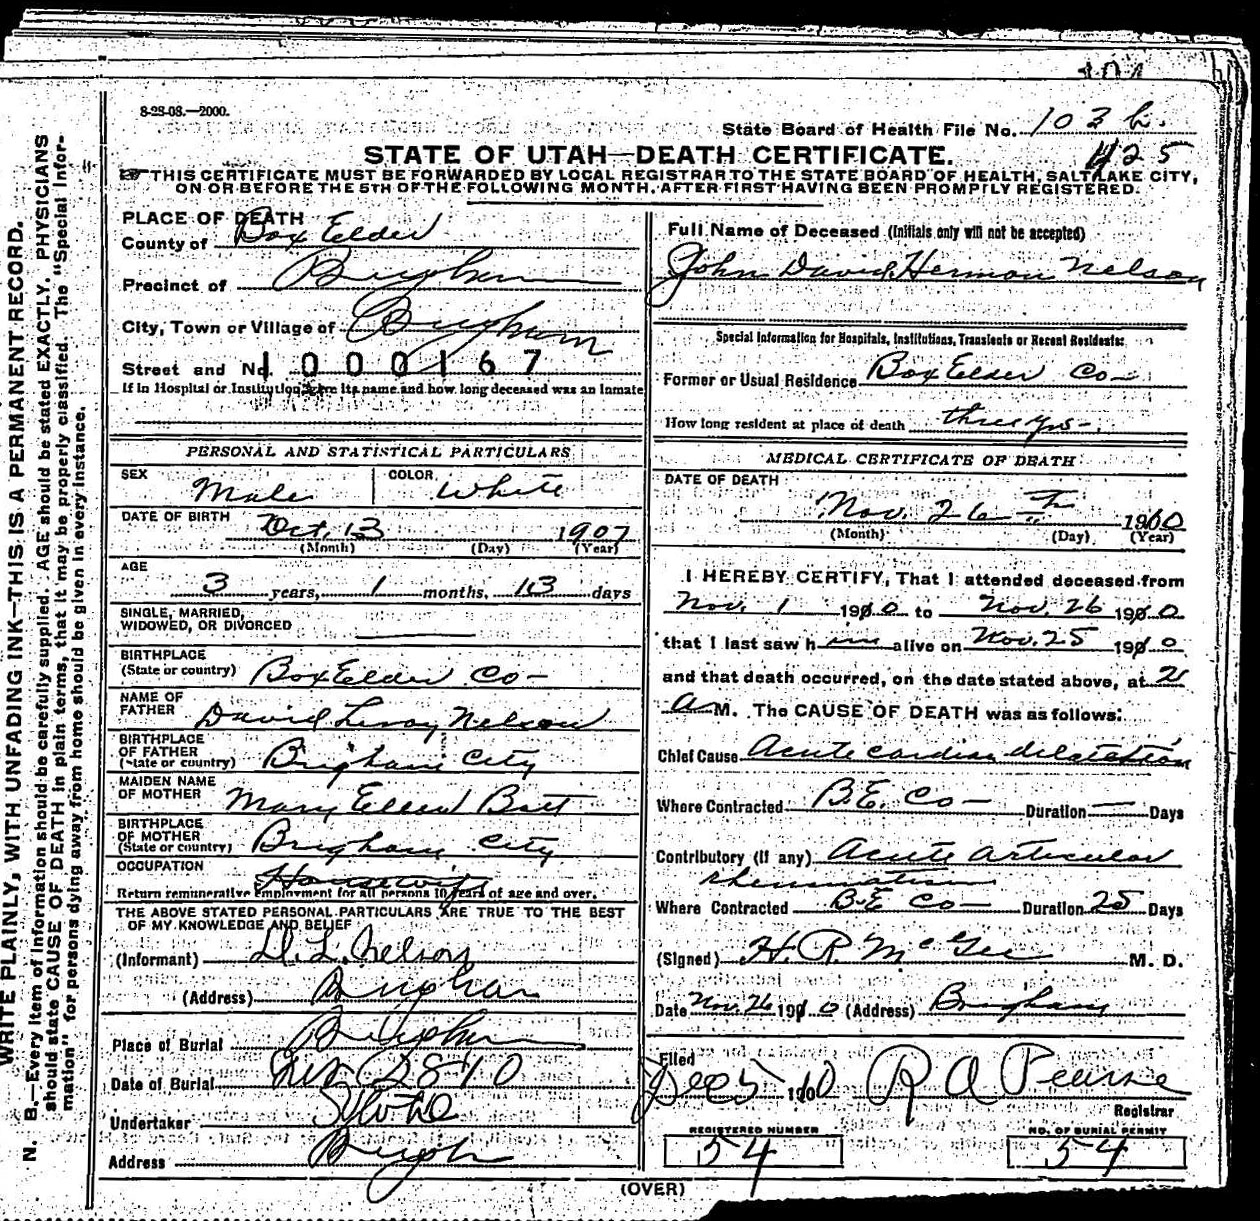 8-28-08.—2000.
State Board of Health File No. 103
425
STATE OF UTAH—DEATH CERTIFICATE.
THIS CERTIFICATE MUST BE FORWARDED BY LOCAL REGISTRAR TO THE STATE BOARD OF HEALTH, SALT LAKE CITY,
ON OR BEFORE THE 5TH OF THE FOLLOWING MONTH, AFTER FIRST HAVING BEEN PROMPTLY REGISTERED.
WRITE PLAINLY, WITH UNFADING INK—THIS IS A PERMANENT RECORD.
N. B.—Every item of information should be carefully supplied. AGE should be stated EXACTLY. PHYSICIANS
should state CAUSE OF DEATH in plain terms, that it may be properly classified. The "Special Infor-
mation" for persons dying away from home should be given in every instance.
PLACE OF DEATH
County of Box Elder
Precinct of Brigham
City, Town or Village of Brigham
Street and No. 1000167
If in Hospital or Institution, give its name and how long deceased was an inmate
PERSONAL AND STATISTICAL PARTICULARS
SEX Male COLOR White
DATE OF BIRTH Oct. 13 1907
(Month) (Day) (Year)
AGE
3 years, 1 months, 13 days
SINGLE, MARRIED,
WIDOWED, OR DIVORCED
BIRTHPLACE
(State or country) Box Elder Co
NAME OF
FATHER David Leroy Nelson
BIRTHPLACE
OF FATHER
(State or country) Brigham City
MAIDEN NAME
OF MOTHER Mary Ellen Bott
BIRTHPLACE
OF MOTHER
(State or country) Brigham City
OCCUPATION Housewife
Return remunerative employment for all persons 10 years of age and over.
THE ABOVE STATED PERSONAL PARTICULARS ARE TRUE TO THE BEST
OF MY KNOWLEDGE AND BELIEF
(Informant) D. L. Nelson
(Address) Brigham
Place of Burial Brigham
Date of Burial Nov 28 10
Undertaker
Address Brigham
Full Name of Deceased (Initials only will not be accepted)
John David Hermon Nelson
Special Information for Hospitals, Institutions, Transients or Recent Residents:
Former or Usual Residence Box Elder Co
How long resident at place of death three yrs
MEDICAL CERTIFICATE OF DEATH
DATE OF DEATH
Nov. 26 th 1910
(Month) (Day) (Year)
I HEREBY CERTIFY, That I attended deceased from
Nov. 1 1910 to Nov. 26 1910
that I last saw him alive on Nov. 25 1910
and that death occurred, on the date stated above, at 2
A M. The CAUSE OF DEATH was as follows:
Chief Cause Acute cardiac dilatation
Where Contracted B.E. Co — Duration — Days
Contributory (if any) Acute articular
rheumatism
Where Contracted B.E Co — Duration 25 Days
(Signed) H. R. McGee M. D.
Date Nov. 26 1910 (Address) Brigham
Filed
Dec 5 1910 R A Pearse
Registrar
REGISTERED NUMBER NO. OF BURIAL PERMIT
54 54
(OVER)